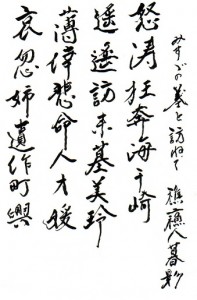 みすゞの墓を訪ねて
怒涛狂奔海千崎
遥遥訪来墓美玲
薄倖悲命人才媛
哀忽姉遺作町興